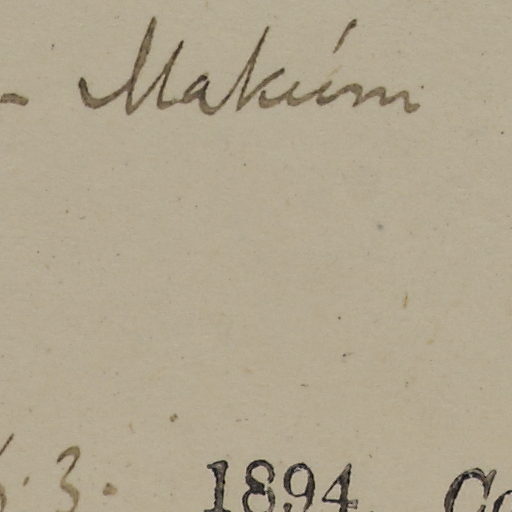 - Makúm
3. 1894. Co